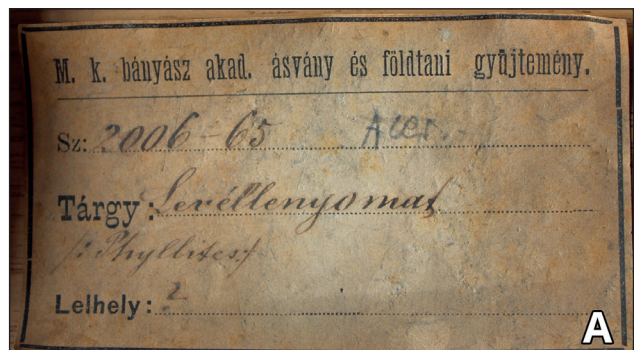 M. k. bányász akad. ásvány és földtani gyűjtemény.
Sz: 2006-65 Acer.
Tárgy: Levéllenyomat
/: Phyllites :/
Lelhely: ?
A